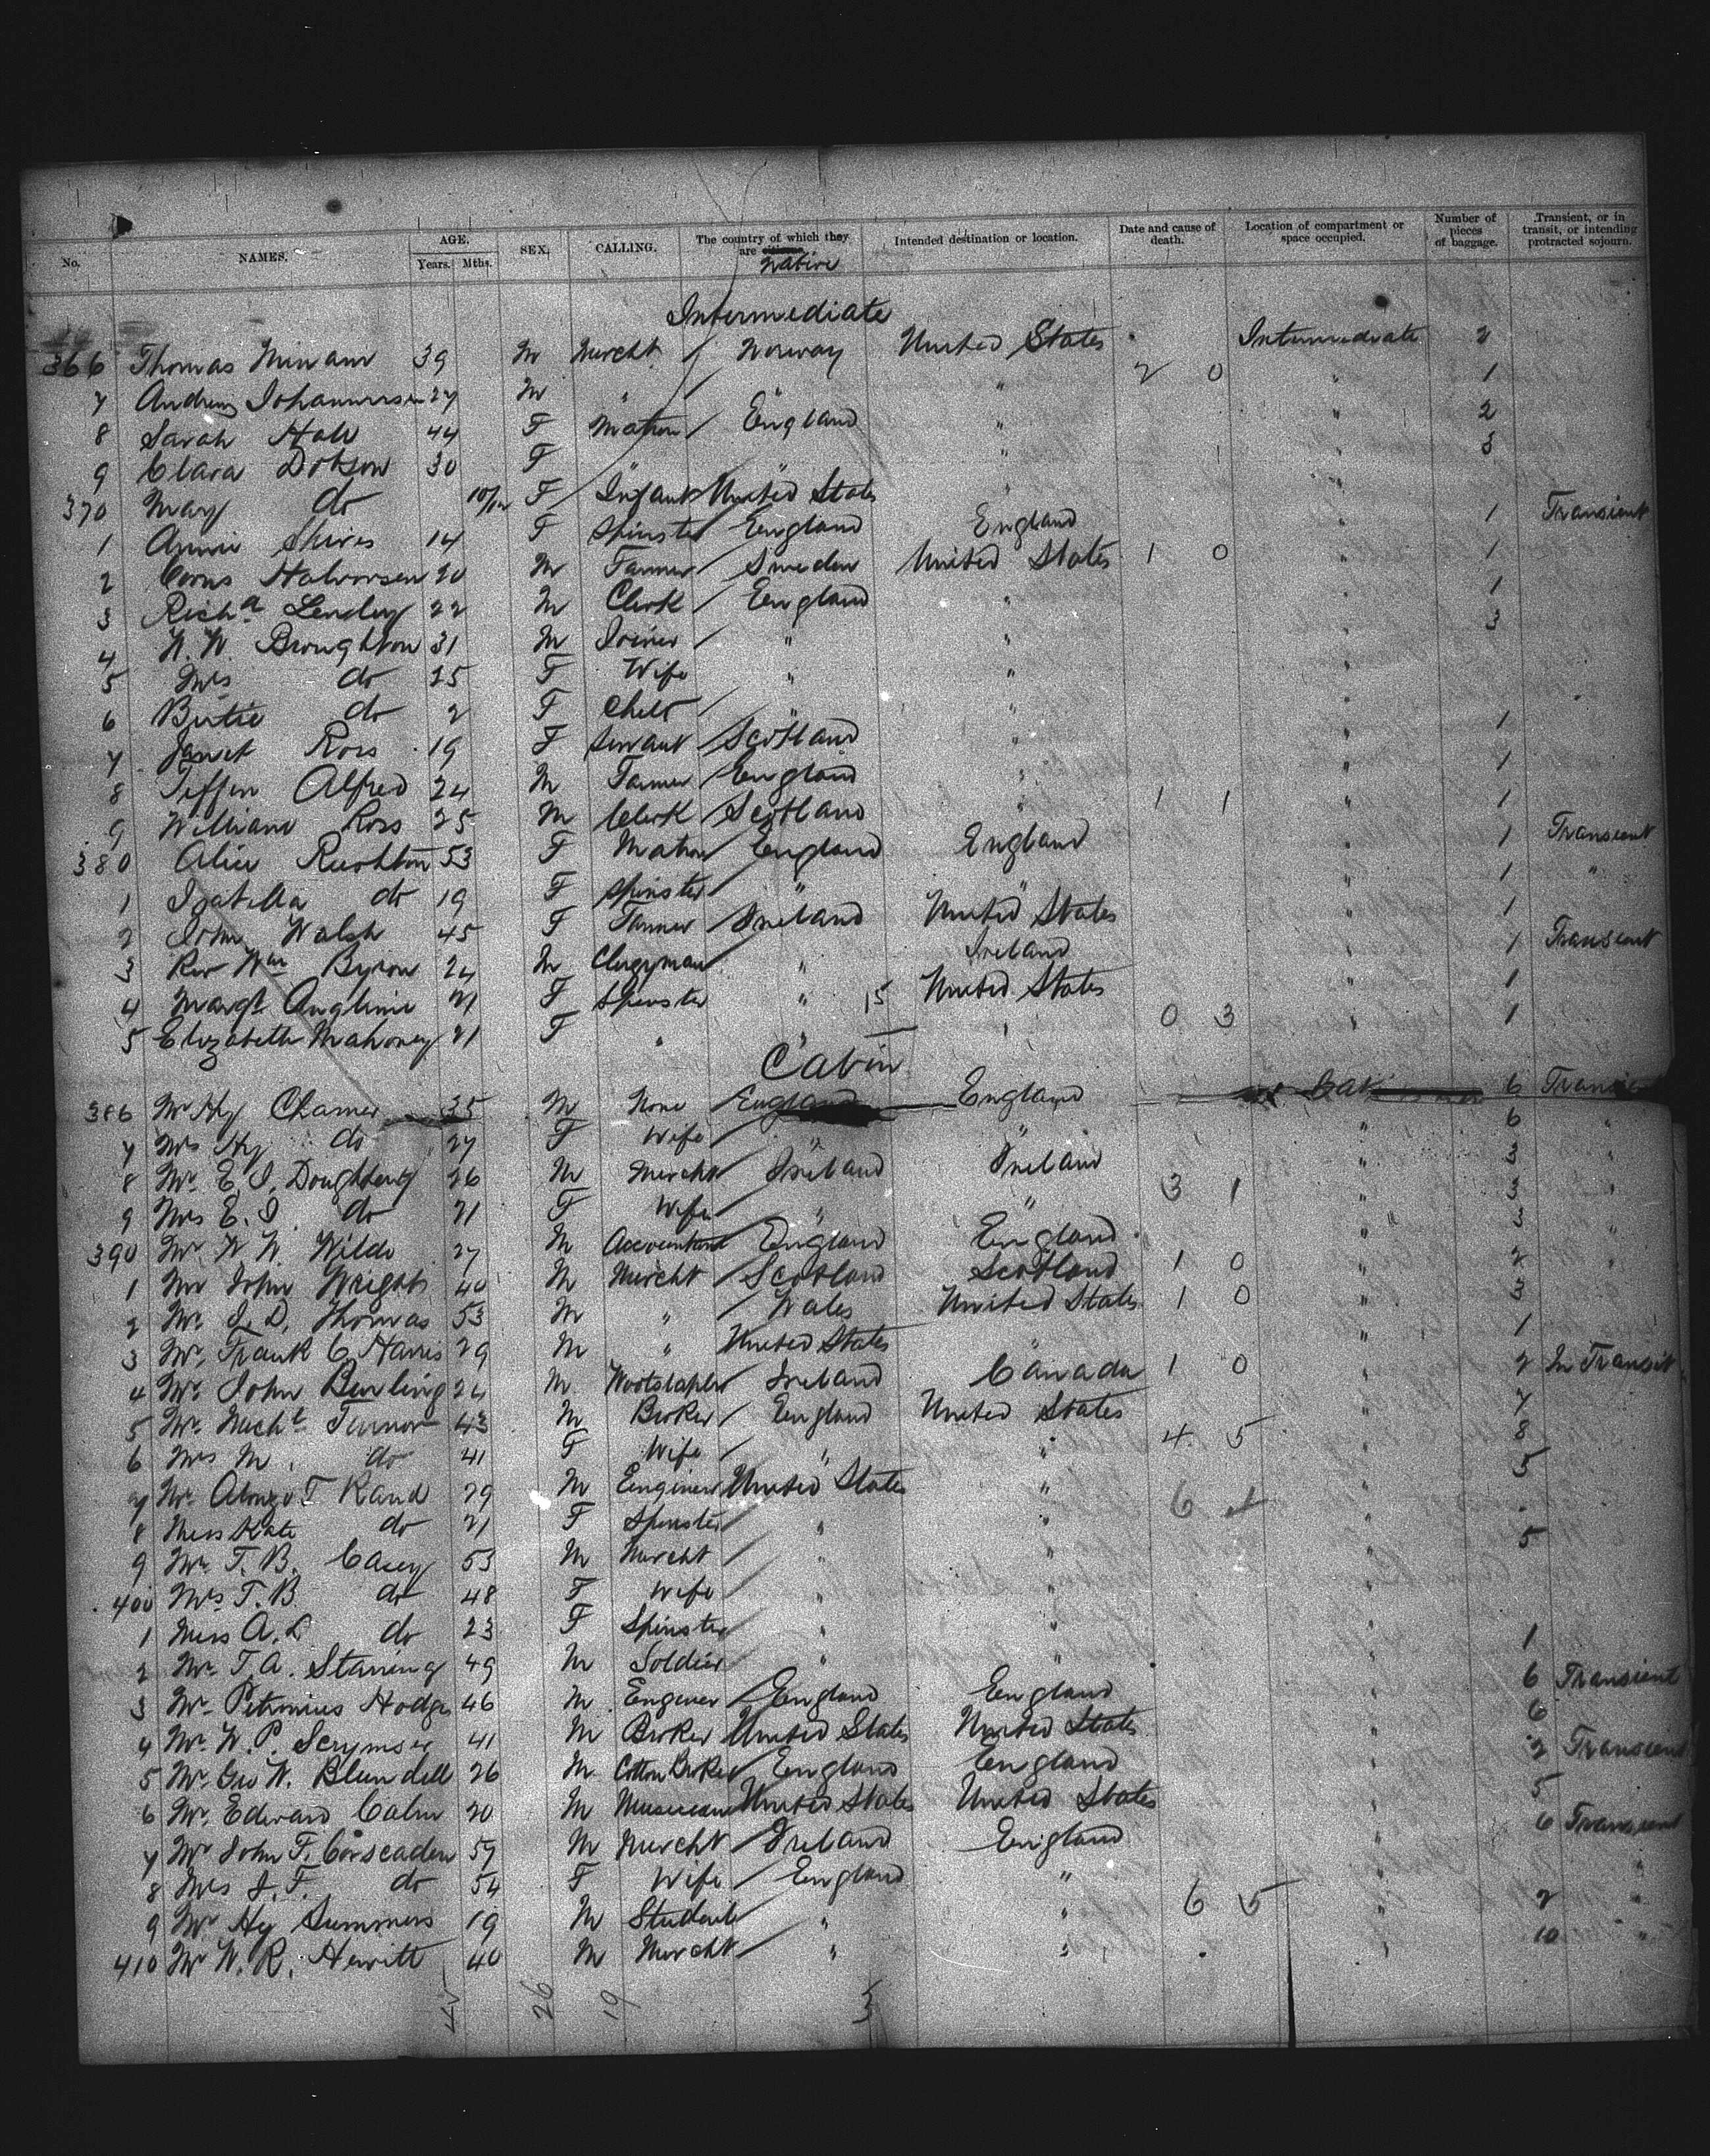 No. NAMES. AGE. Years. Mths. SEX. CALLING. The country of which they are citizens Native Intended destination or location. Date and cause of death. Location of compartment or space occupied. Number of pieces of baggage. Transient, or in transit, or intending protracted sojourn.
Intermediate
366 Thomas 39 M Mercht Norway United States Intermediate 2
7 Andrew 27 M " " " 2 0 " 1
8 Sarah 44 F Matron England " " 2
9 Clara Dobson 30 F " " " " 3
370 Mary do 10/12 F Infant United States " "
1 Annie Shires 14 F Spinster England England " 1 Transient
2 Halvorsen 20 M Farmer Sweden United States 1 0 " 1
3 Richd 22 M Clerk England " " 1
4 W. W. Broughton 31 M Joiner " " " 3
5 Mrs do 25 F Wife " " "
6 do 2 F Child " " "
7 Janet Ross 19 F Servant Scotland " " 1
8 Alfred 24 M Farmer England " " 1
9 William Ross 25 M Clerk Scotland " 1 1 " 1
380 Alice Rushton 53 F Matron England England " 1 Transient
1 Isabella do 19 F Spinster " " " 1 "
2 John Walsh 45 F Farmer Ireland United States " 1
3 Rev Wm Byron 24 M Clergyman " Ireland " 1 Transient
4 Margt Anglime 21 F Spinster " 15 United States " 1
5 Elizabeth Mahoney 21 F " " " 0 3 " 1
Cabin
386 Mr Hy 35 M None England England 6
7 Mrs Hy do 27 F Wife " " " 6 "
8 Mr E. J. Doughterty 26 M Mercht Ireland Ireland " 3 "
9 Mrs E. J. do 21 F Wife " " 3 1 " 3 "
390 Mr W. W. Wilde 27 M Accountant England England " 3 "
1 Mr John Wright 40 M Mercht Scotland Scotland 1 0 " 2 "
2 Mr J. D. Thomas 53 M " Wales United States 1 0 " 3
3 Mr Frank C Harris 29 M " United States " " 1
4 Mr John 24 M Ireland Canada 1 0 " 2 In Transit
5 Mr Michl Turnor 43 M Broker England United States " 7
6 Mrs M. do 41 F Wife " " 4 5 " 8
7 Mr Alonzo T Rand 29 M Engineer United States " " 5
8 Miss Kate do 21 F Spinster " " 6 "
9 Mr T. B. Casey 53 M Mercht " " " 5
400 Mrs T. B. do 48 F Wife " " "
1 Miss A. L do 23 F Spinster " " "
2 Mr T. A. Staning 49 M Soldier " " " 1
3 Mr Hodge 46 M Engineer England England " 6 Transient
4 Mr W. P. Scrymser 41 M Broker United States United States " 6
5 Mr Geo W. Blundell 26 M Cotton Broker England England " 2 Transient
6 Mr Edward Calm 20 M Musician United States United States " 5
7 Mr John F. Corscaden 59 M Mercht Ireland England " 6 Transient
8 Mrs J. F. do 54 F Wife England " " "
9 Mr Hy Summers 19 M Student " " 6 5 " 2 "
410 Mr W. R. Hewitt 40 M Mercht " " " 10 "
26 19